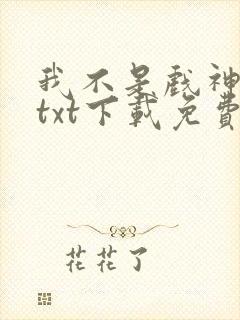 我不是戲神
txt下載免費
花花了